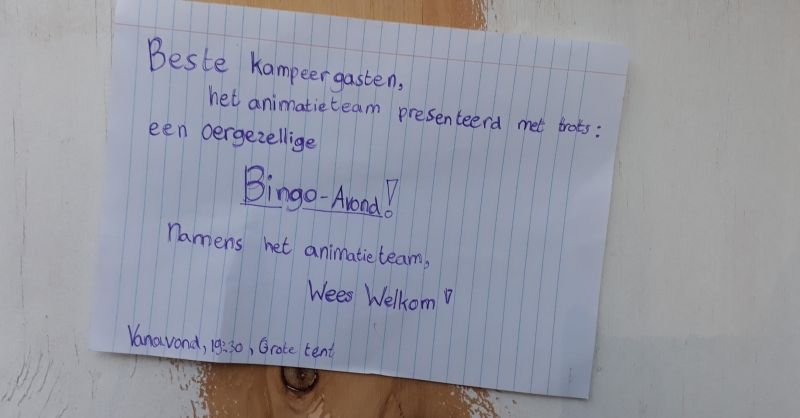 Beste kampeergasten,
het animatieteam presenteerd met trots:
een oergezellige
Bingo-Avond!
namens het animatieteam,
Wees Welkom!
Vanavond, 19:30, Grote tent